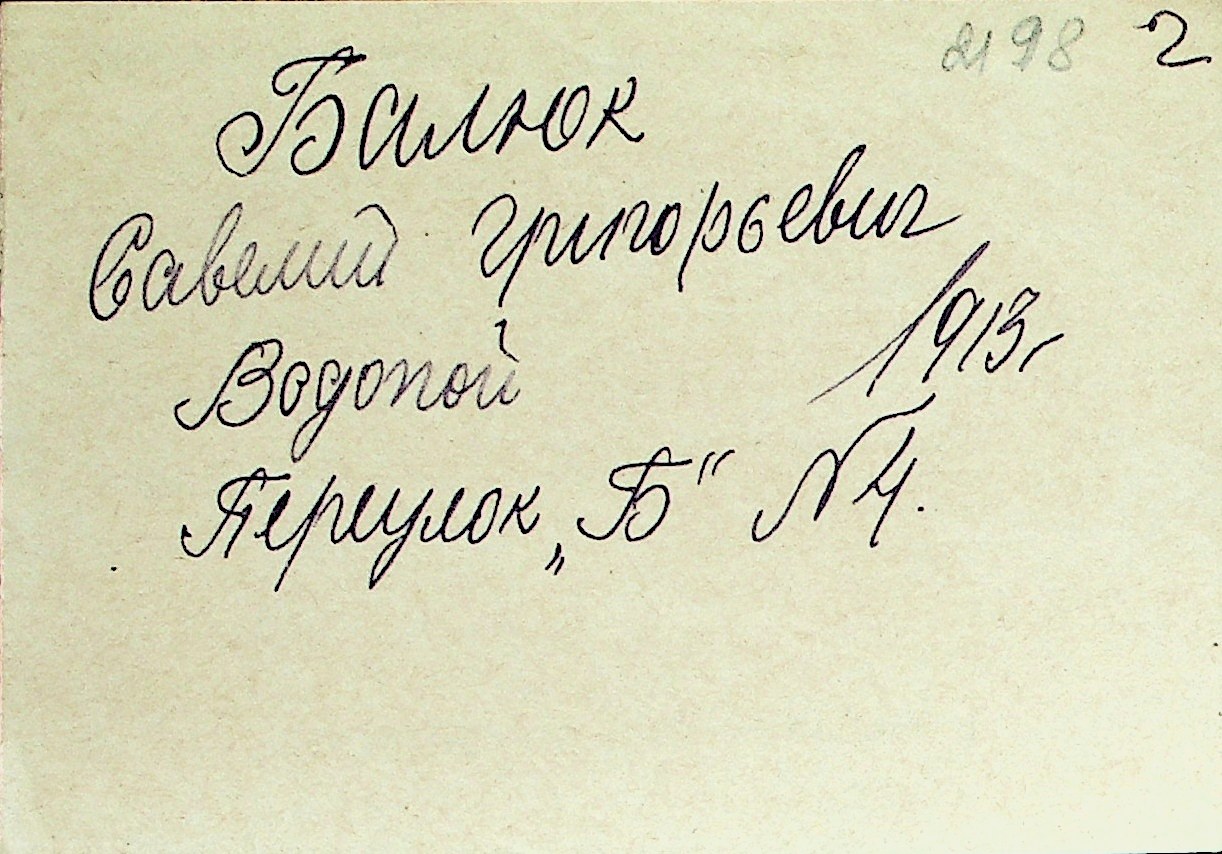 2198 2
Балюк
Савелий Григорьевич
1913г
Водопой
Переулок „Б“ №4.